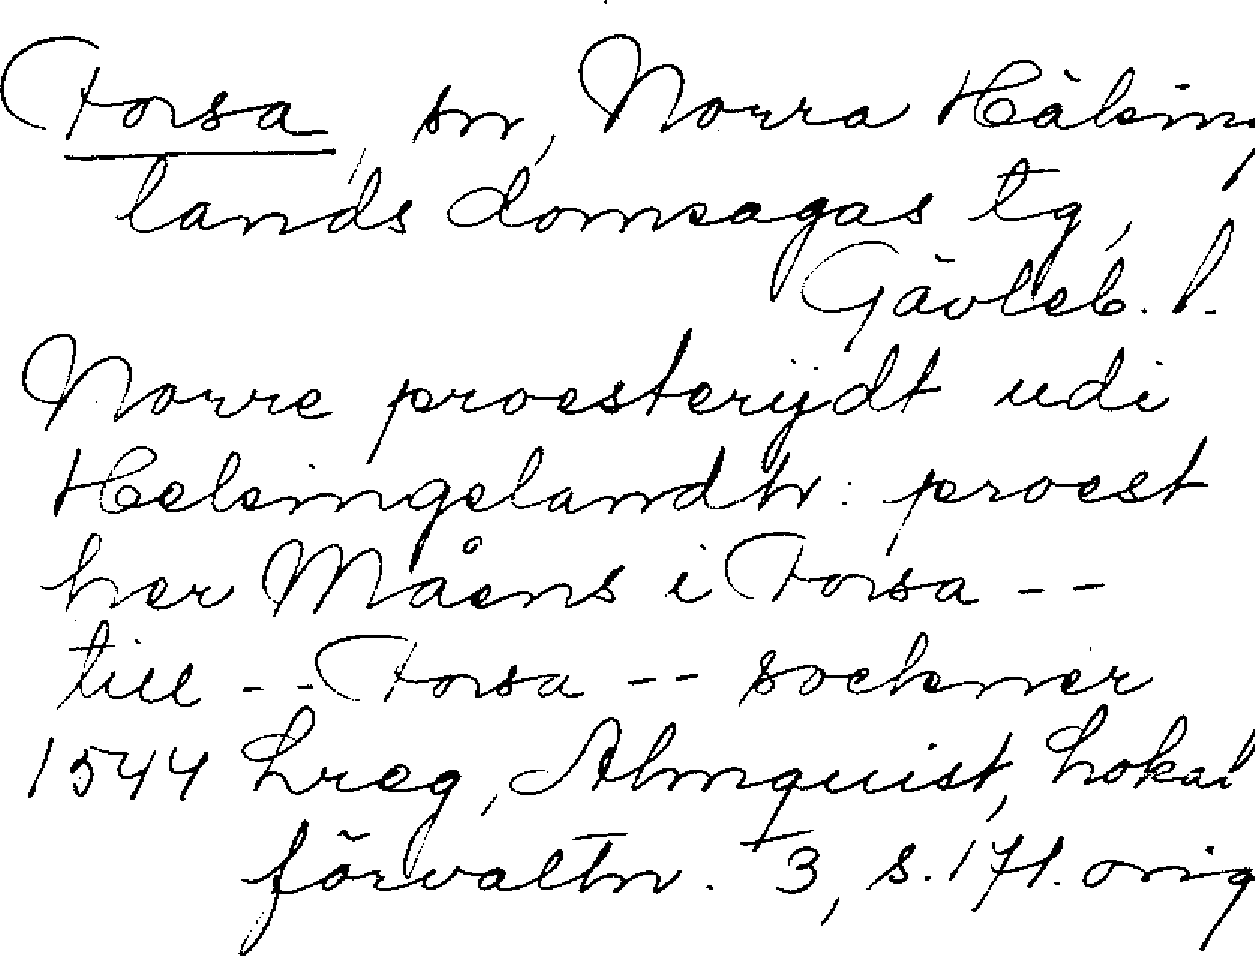 Forsa, sn, Norra Hälsing
lands domsagas tg,
Gävleb. l.
Norre proesterijdt udi
Helsingelandh: proest
her Måens i Forsa --
till -- Forsa -- sockner
1544 Lreg, Almquist, Lokal
förvaltn. 3, s. 171. orig